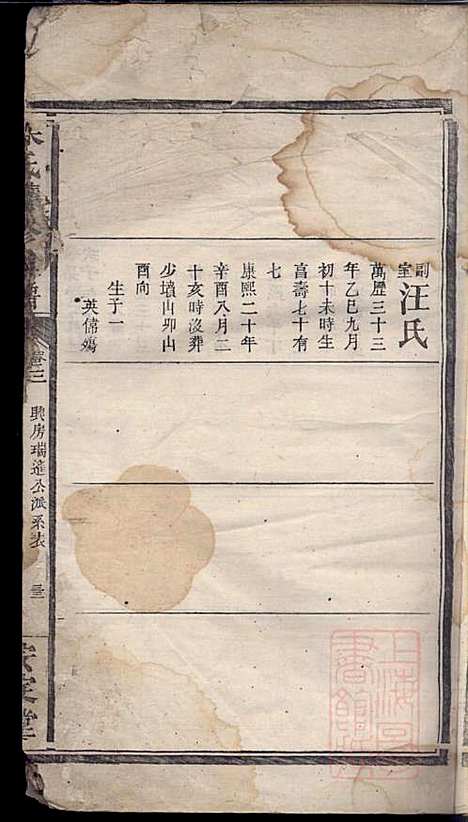 副室汪氏
萬歷三十三
年乙巳九月
初十未時生
富壽七十有
七
康熙二十年
辛酉八月二
十亥時沒葬
少墳山卯山
酉向
生子一
英儒殤
卷三
興房瑞進公派系表
三
安定堂